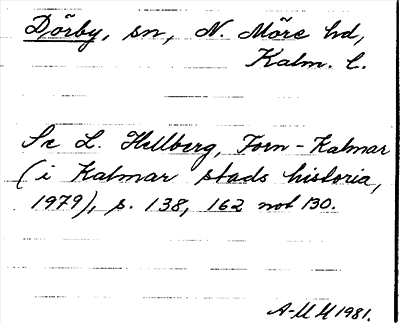 Dörby, sn, N. Möre hd,
Kalm. l.
Se L. Hellberg, Forn-Kalmar
(i Kalmar stads historia,
1979), s. 138, 162 not 130.
A-M M 1981.